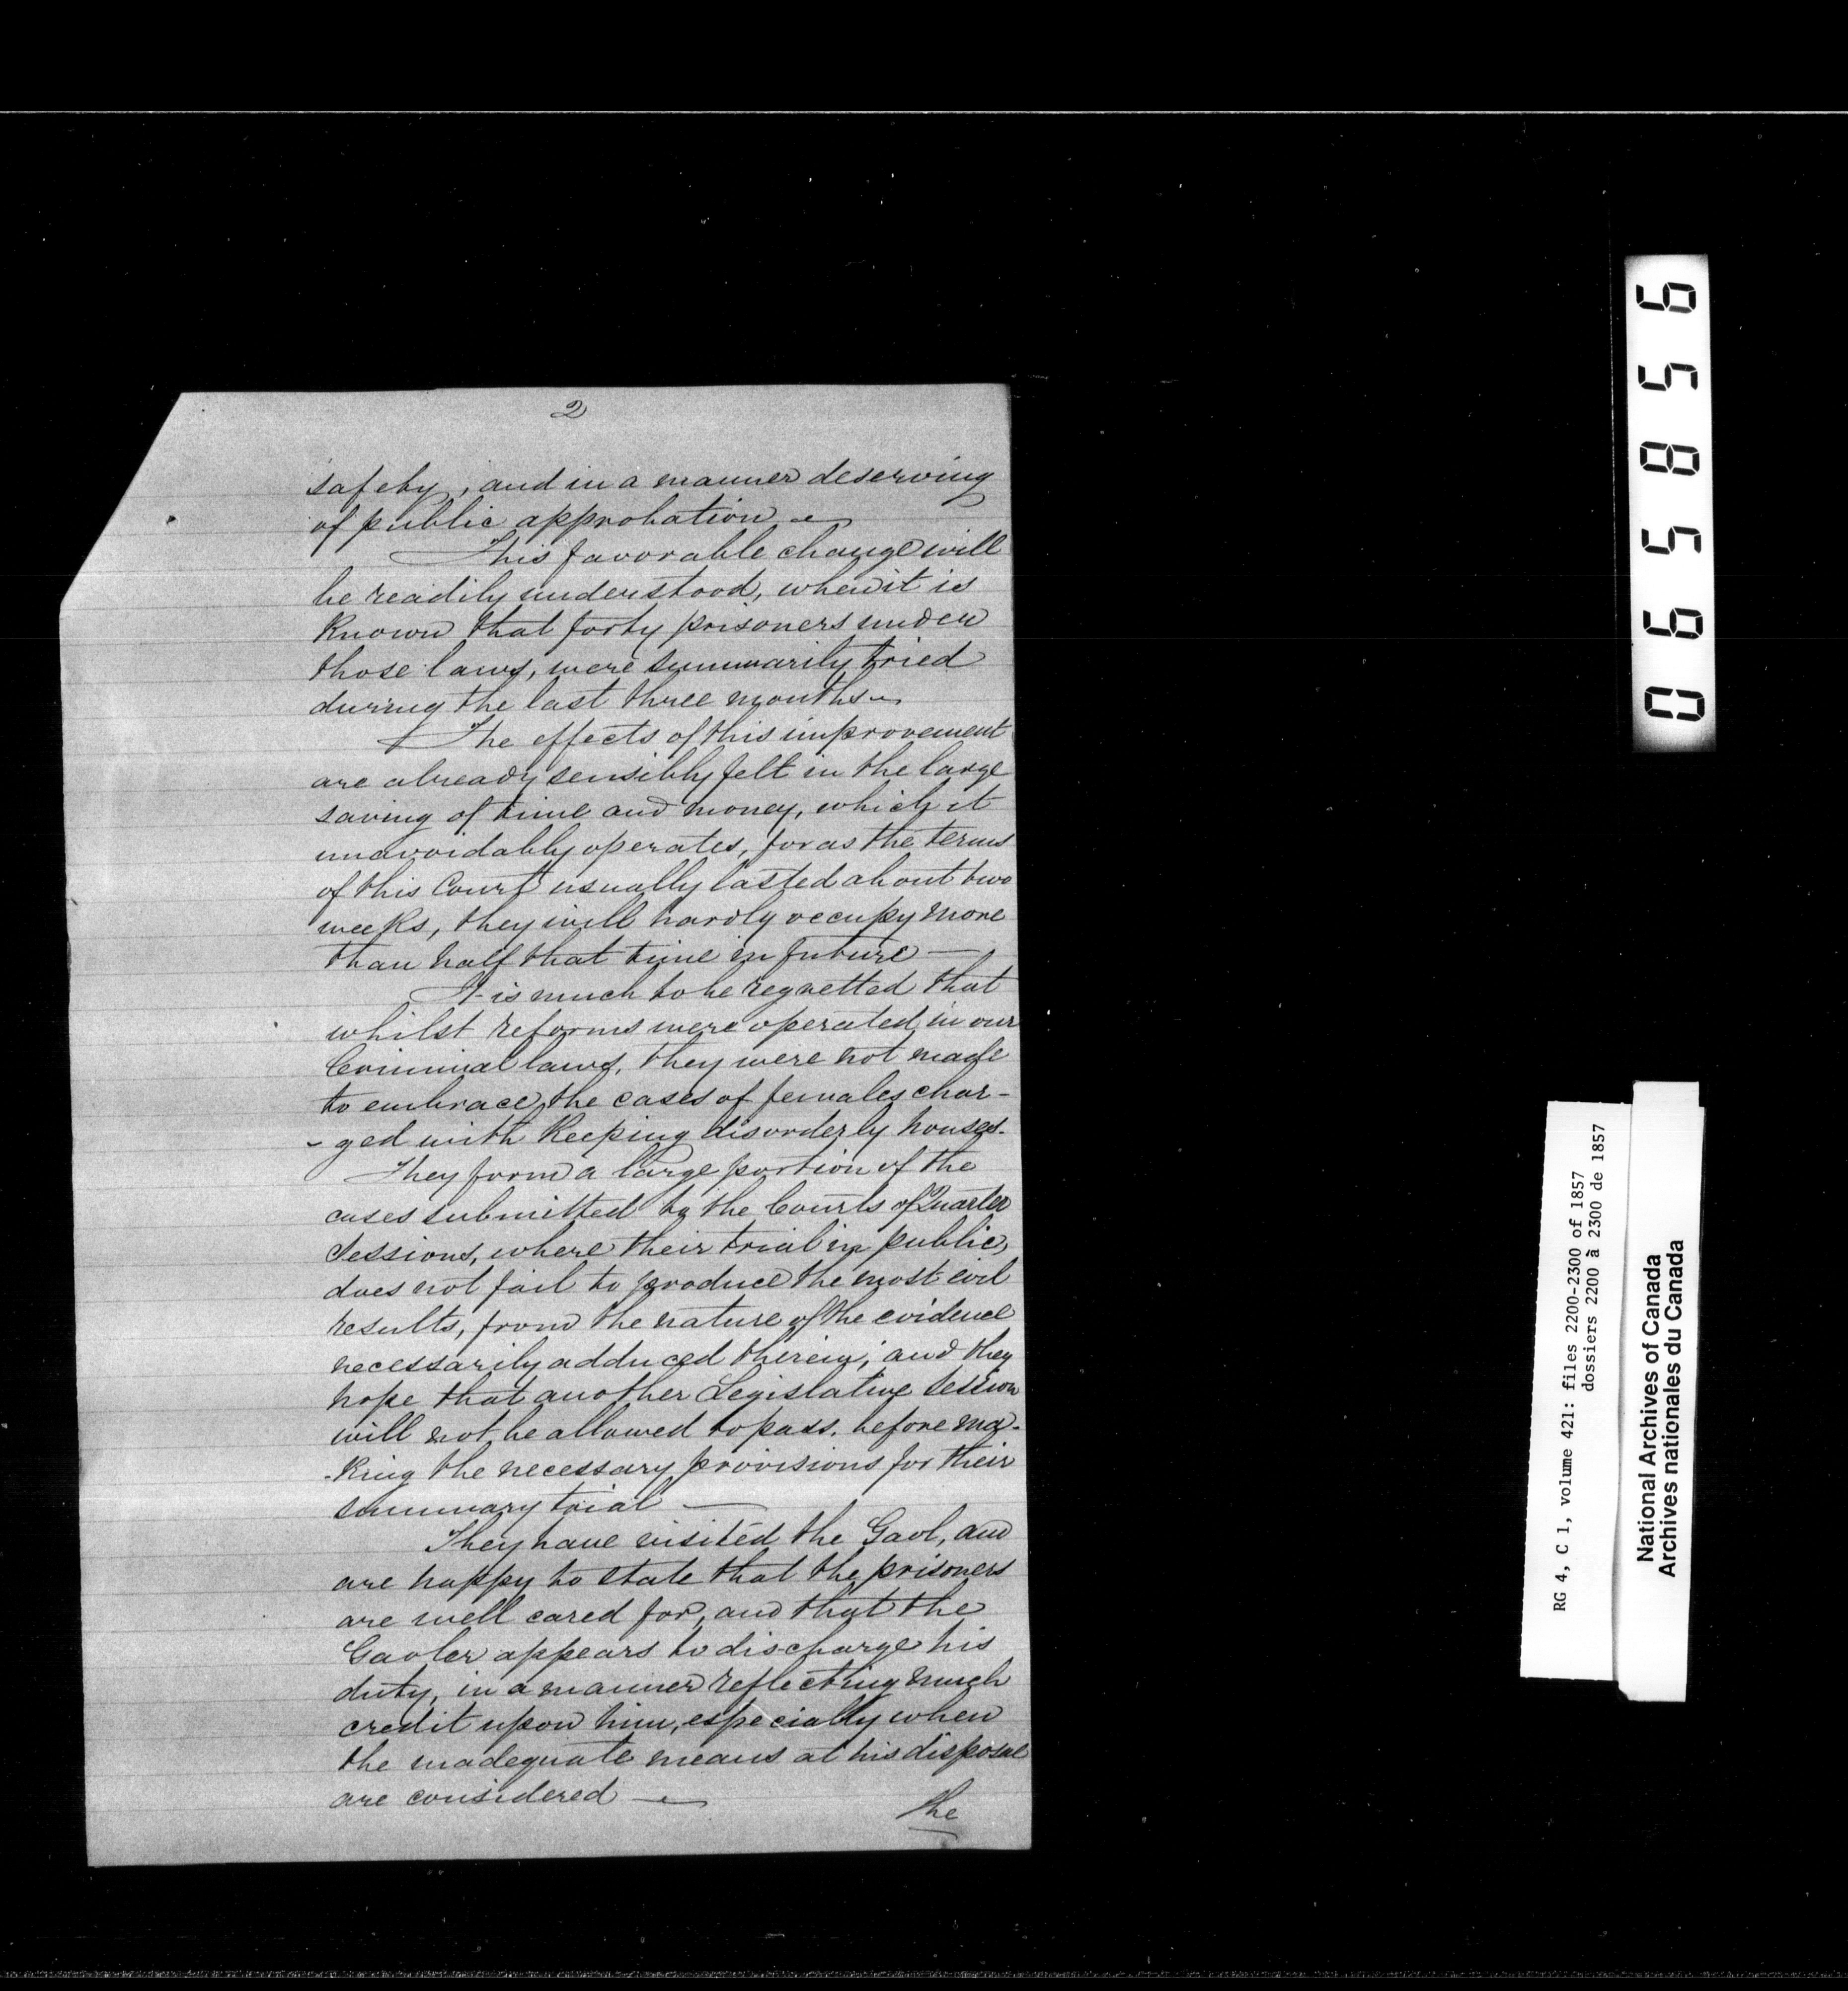 2
safety, and in a manner deserving
of public approbation.
This favorable change will
be readily understood, when it is
known that forty prisoners under
those laws, were summarily tried
during the last three months.
The effects of this improvement
are already sensibly felt in the large
saving of time and money, which it
unavoidably operates, for as the terms
of this Court usually lasted about two
weeks, they will hardly occupy more
than half that time in future —
It is much to be regretted that
whilst reforms were operated in our
Criminal laws, they were not made
to embrace the cases of females char-
-ged with keeping disorderly houses.
They form a large portion of the
cases submitted to the Courts of Quarter
Sessions, where their trial in public,
does not fail to produce the most evil
results, from the nature of the evidence
necessarily adduced therein; and they
hope that another Legislative Session
will not be allowed to pass, before ma-
-king the necessary provisions for their
summary trial —
They have visited the Gaol, and
are happy to state that the prisoners
are well cared for, and that the
Gaoler appears to discharge his
duty, in a manner reflecting much
credit upon him, especially when
the inadequate means at his disposal
are considered —
the
065856
RG 4, C 1, volume 421: files 2200-2300 of 1857
dossiers 2200 à 2300 de 1857
National Archives of Canada
Archives nationales du Canada